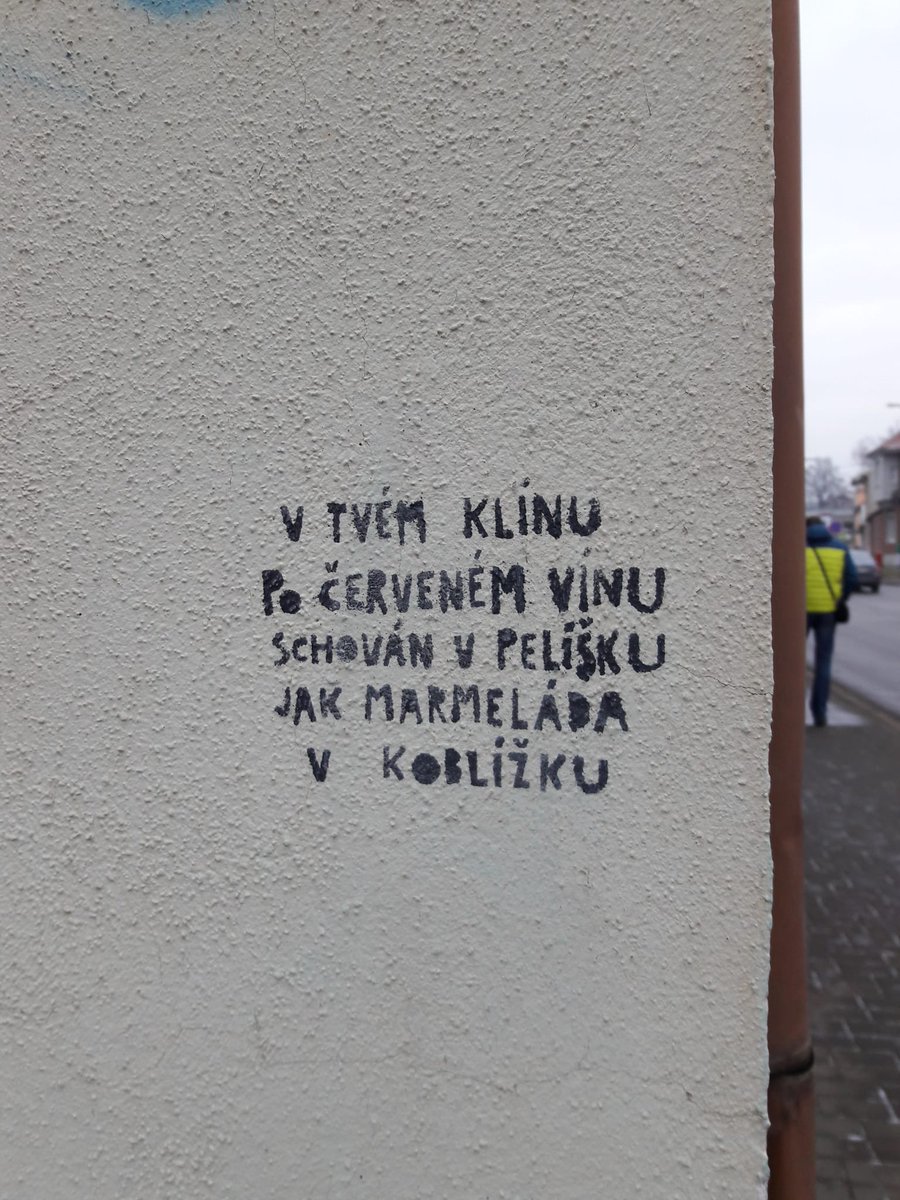 V TVÉM KLÍNU
Po ČERVENÉM VÍNU
SCHOVÁN V PELÍŠKU
JAK MARMELÁDA
V KOBLÍŽKU